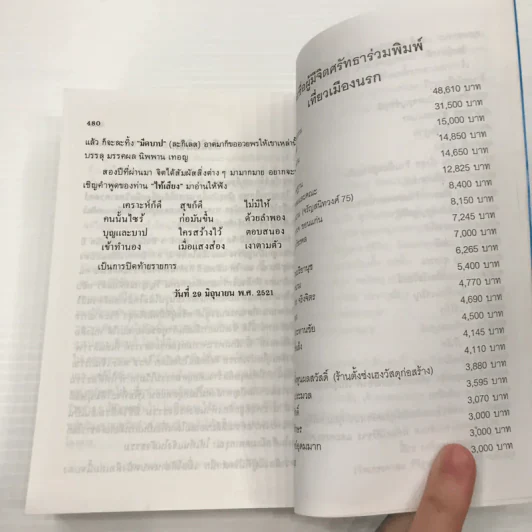 480
แล้ว ก็จะละทิ้ง "มีดบาป" (ละกิเลส) อาตมาก็ขออวยพรให้เขาเหล่านั้
บรรลุ มรรคผล นิพพาน เทอญ
สองปีที่ผ่านมา จิตได้สัมผัสสิ่งต่าง ๆ มามากมาย อยากจะ
เชิญคำพูดของท่าน "ไท้เสียง" มาอ่านให้ฟัง
เคราะห์ก็ดี สุขก็ดี ไม่มีให้
คนนั้นไซร้ ก่อมันขึ้น ด้วยลำพอง
บุญและบาป ใครสร้างไว้ ตอบสนอง
เข้าทำนอง เมื่อแสงส่อง เงาตามตัว
เป็นการปิดท้ายรายการ
วันที่ 29 มิถุนายน พ.ศ. 2521
ผู้มีจิตศรัทธาร่วมพิมพ์
เที่ยวเมืองนรก
48,610 บาท
31,500 บาท
15,000 บาท
14,850 บาท
14,650 บาท
12,825 บาท
8,400 บาท
(จรัญสนิทวงศ์ 75) 8,150 บาท
ขอนแก่น 7,245 บาท
7,000 บาท
6,265 บาท
5,400 บาท
4,770 บาท
4,690 บาท
4,500 บาท
4,145 บาท
4,110 บาท
(ร้านตั้งซ่งเฮงวัสดุก่อสร้าง) 3,880 บาท
3,595 บาท
3,070 บาท
3,000 บาท
3,000 บาท
3,000 บาท